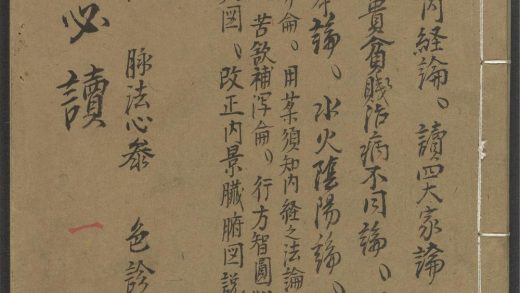 内経論、讀四大家論
貴貧賤治病不同論、
論、水火隂陽論、
論。用薬須知内経之法論
苦欲補泻論、行方智圓
図、改正内景臓腑図説
脉法心参 色診
必讀
一